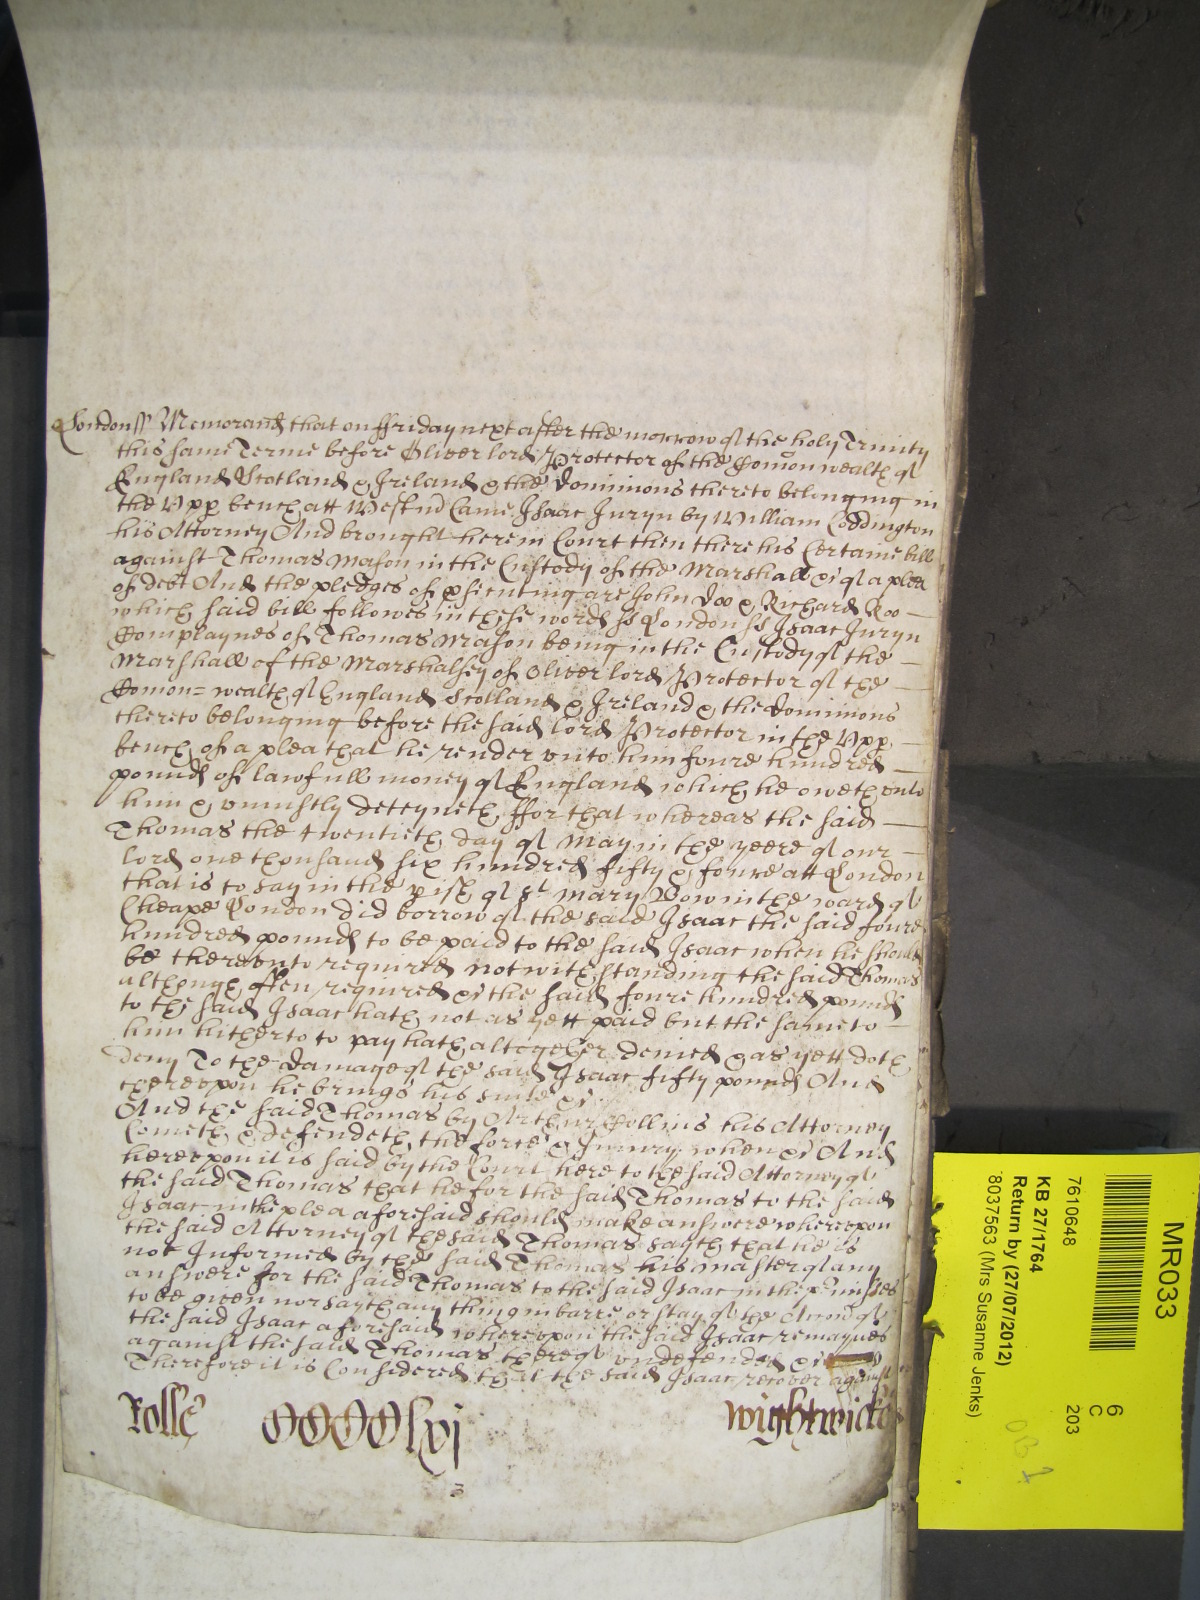 London ss Memorand that on ffriday next after the morrow of the holy Trinity
this same Terme before Oliver lord Protector of the Comon wealth of
England Scotland & Ireland & the dominions thereto belonging in
the Upp bench att Westm Came Isaac Juryn by William Coddington
his Attorney And brought here in Court then there his Certaine bill
against Thomas Mason in the Custody of the Marshall &c of a plea
of debt And the pledges of psecuting are John Doo & Richard Roo
which said bill followes in these words ss London ss Isaac Juryn
Complaynes of Thomas Mason being in the Custody of the
Marshall of the Marshalsey of Oliver lord Protector of the
Comon= wealth of England Scotland & Ireland & the dominions
thereto belonging before the said lord Protector in the Upp
bench of a plea that he render unto him foure hundred
pounds of lawfull money of England which he oweth unto
him & uniustly deteyneth ffor that whereas the said
Thomas the twentieth day of May in the yeere of our
lord one thousand six hundred fifty & foure att London
that is to say in the pish of St Mary Bow in the ward of
Cheape London did borrow of the said Isaac the said foure
hundred pounds to be paid to the said Isaac when he should
be thereunto required notwithstanding the said Thomas
although often required &c the said foure hundred pounds
to the said Isaac hath not as yett paid but the same to
him hitherto to pay hath altogether denied & as yett doth
deny To the damage of the said Isaac fifty pounds And
thereupon he brings his suite &c
And the said Thomas by Arthur Collins his Attorney
Cometh & defendeth the force & Iniury when &c And
hereupon it is said by the Court here to the said Attorney of
the said Thomas that he for the said Thomas to the said
Isaac in the plea aforesaid should make answere whereupon
the said Attorney of the said Thomas sayth that he is
not Informed by the said Thomas his master of any
answere for the said Thomas to the said Isaac in the pmisses
to be given nor sayth any thing in barre or stay of the Accon of
the said Isaac aforesaid whereupon the said Isaac remaynes
against the said Thomas thereof undefended &c
Therefore it is Considered that the said Isaac recover against
Rolle CCCClxj Wightwicke
MR033
7610648
KB 27/1764
Return by (27/07/2012)
8037563 (Mrs Susanne Jenks)
6
C
203